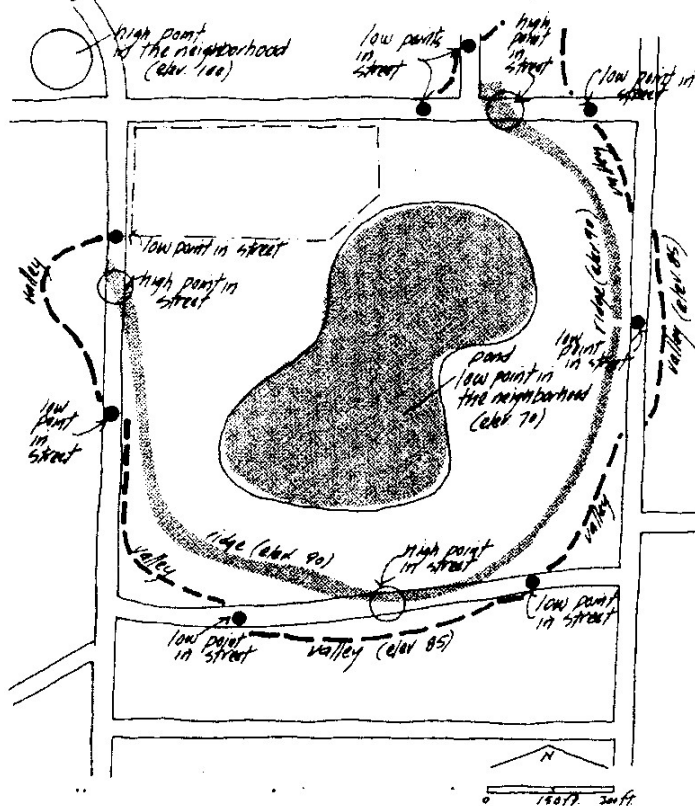 high point
in the neighborhood
(elev. 100)
low points
in
street
high
point
in
street
low point in
street
valley
low point in street
valley
high point in
street
ridge (elev 90)
valley (elev 85)
low
point
in street
pond
low point in
the neighborhood
(elev 70)
low
point
in
street
valley
ridge (elev 90)
high point
in street
valley
low point
in street
low point
in street
valley (elev 85)
N
0 150 ft. 300 ft.